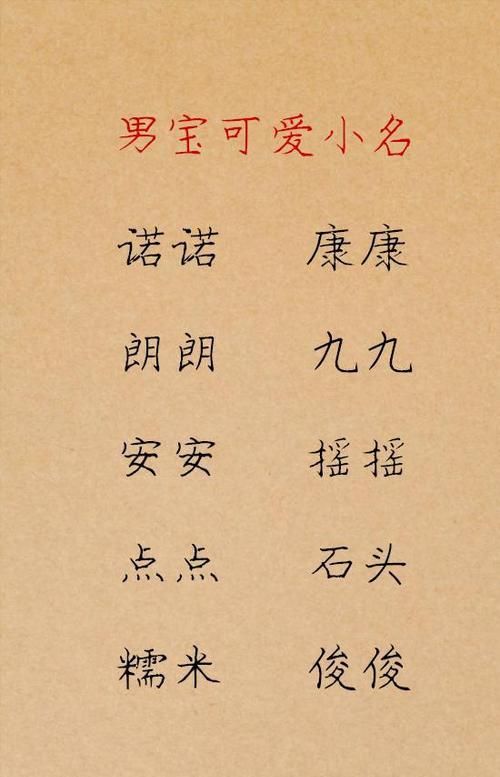 男宝可爱小名
诺诺 康康
朗朗 九九
安安 摇摇
点点 石头
糯米 俊俊